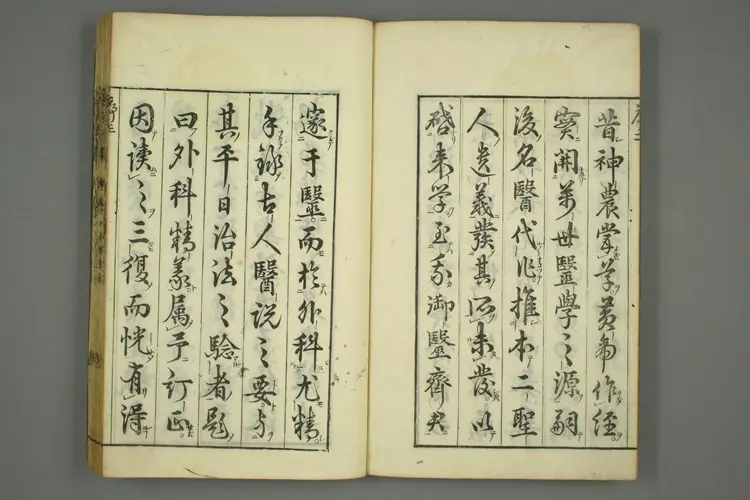 昔神農嘗草黄帝作經
實開萬世醫學之源嗣
後名醫代作推本二聖
人遺義發其所未發以
啓來學至我御醫齊
邃于醫而於外科尤精
手錄古人醫説之要与
其平日治法之驗者題
曰外科精義属予訂正
因读之三復而恍有得